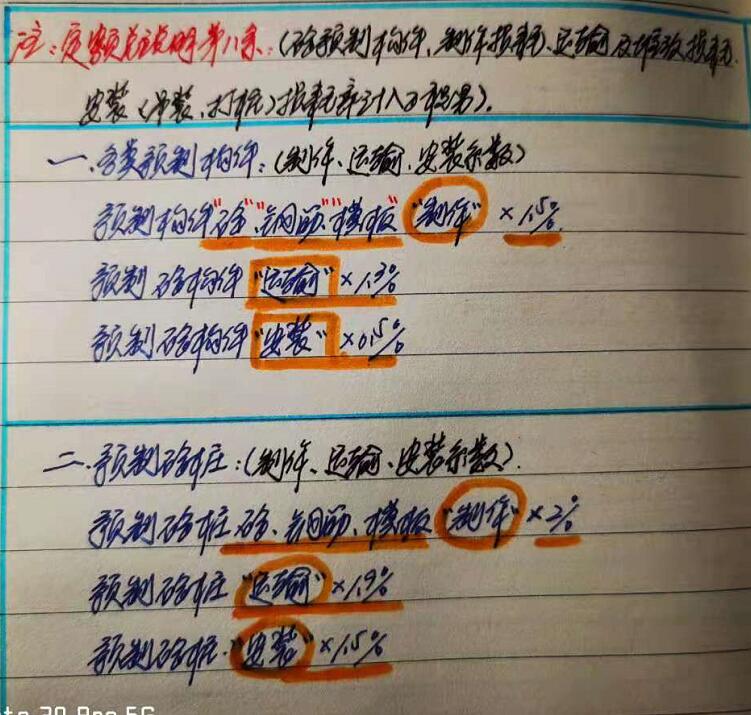 注:定额总说明第八条:(砼预制构件、制作损耗、运输及堆放损耗、
安装(吊装、打桩)损耗率计入子目男).
一、各类预制构件:(制作、运输、安装系数)
预制构件"砼"、"钢筋"、"模板""制作"×1.5%
预制砼构件"运输"×1.3%
预制砼构件"安装"×0.5%
二、预制砼桩:(制作、运输、安装系数).
预制砼桩砼、钢筋、模板"制作"×2%
预制砼桩"运输"×1.9%
预制砼桩"安装"×1.5%
20 Pro 5G